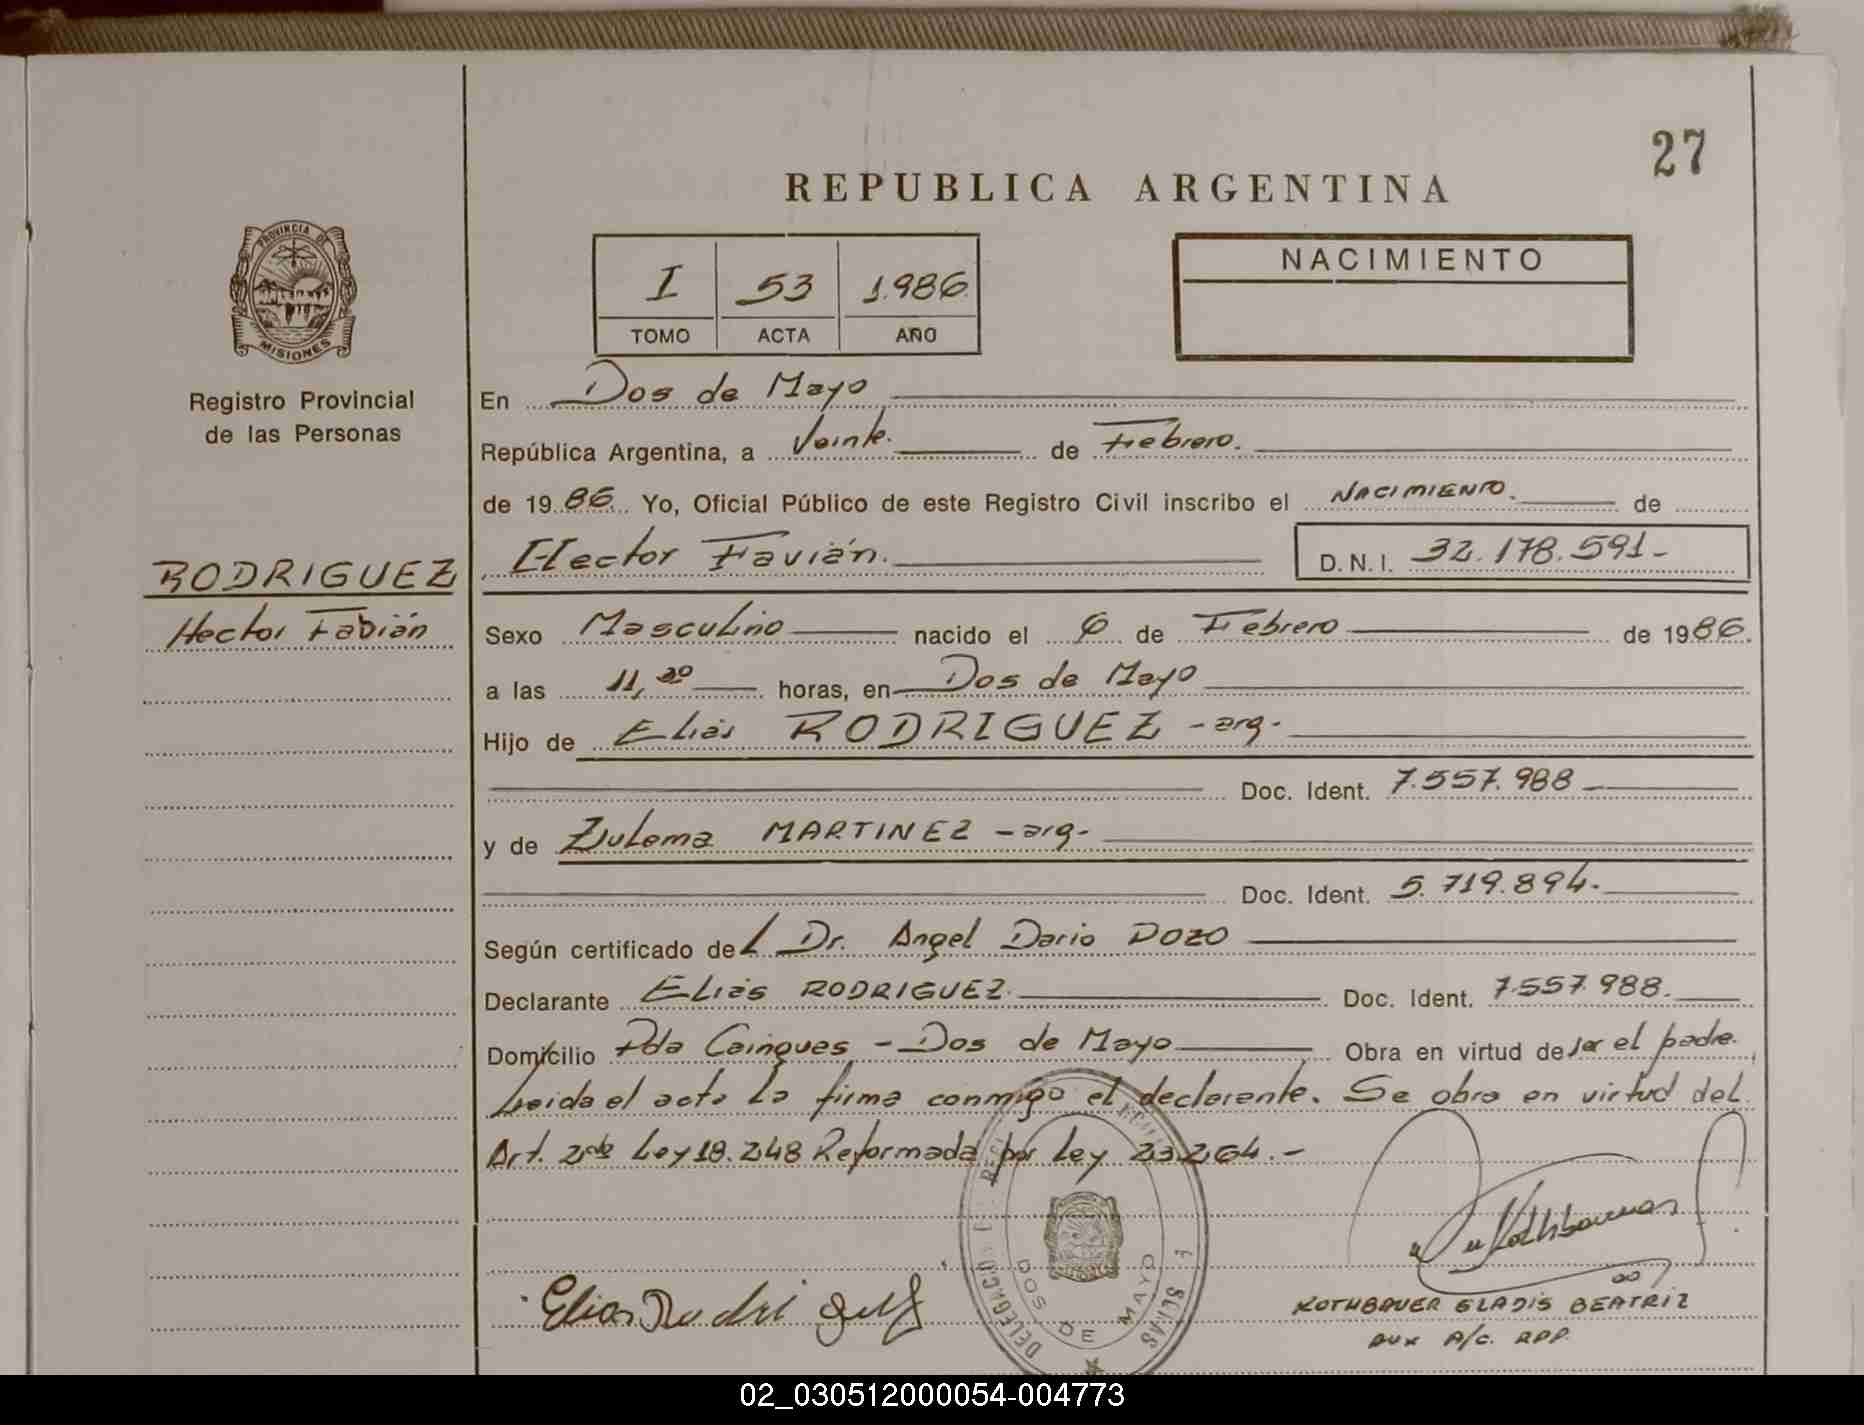 27
REPUBLICA ARGENTINA
PROVINCIA DE
MISIONES
Registro Provincial
de las Personas
I 53 1.986
TOMO ACTA AÑO
NACIMIENTO
En Dos de Mayo
República Argentina, a Veinte. de Febrero.
de 1986. Yo, Oficial Público de este Registro Civil inscribo el NACIMIENTO. de
Hector Favián. D.N.I. 32.178.591-
RODRIGUEZ
Hector Fabián
Sexo Masculino nacido el 6 de Febrero de 1986.
a las 11,30 horas, en Dos de Mayo
Hijo de Eliás RODRIGUEZ - arg.-
Doc. Ident. 7.557.988
y de Zulema MARTINEZ - arg.-
Doc. Ident. 5.719.894.
Según certificado del Dr. Angel Dario DOZO
Declarante Eliás RODRIGUEZ. Doc. Ident. 7.557.988.
Domicilio Pda Cainques - Dos de Mayo Obra en virtud de ser el padre.
Leida el acta la firma conmigo el declarante. Se obra en virtud del
Art. 2do Ley 18.248 Reformada por Ley 23.264.-
DOS DE MAYO
Elias Rodri guez
ROTHBAUER GLADIS BEATRIZ
AUX A/C. RPP.
02_030512000054-004773